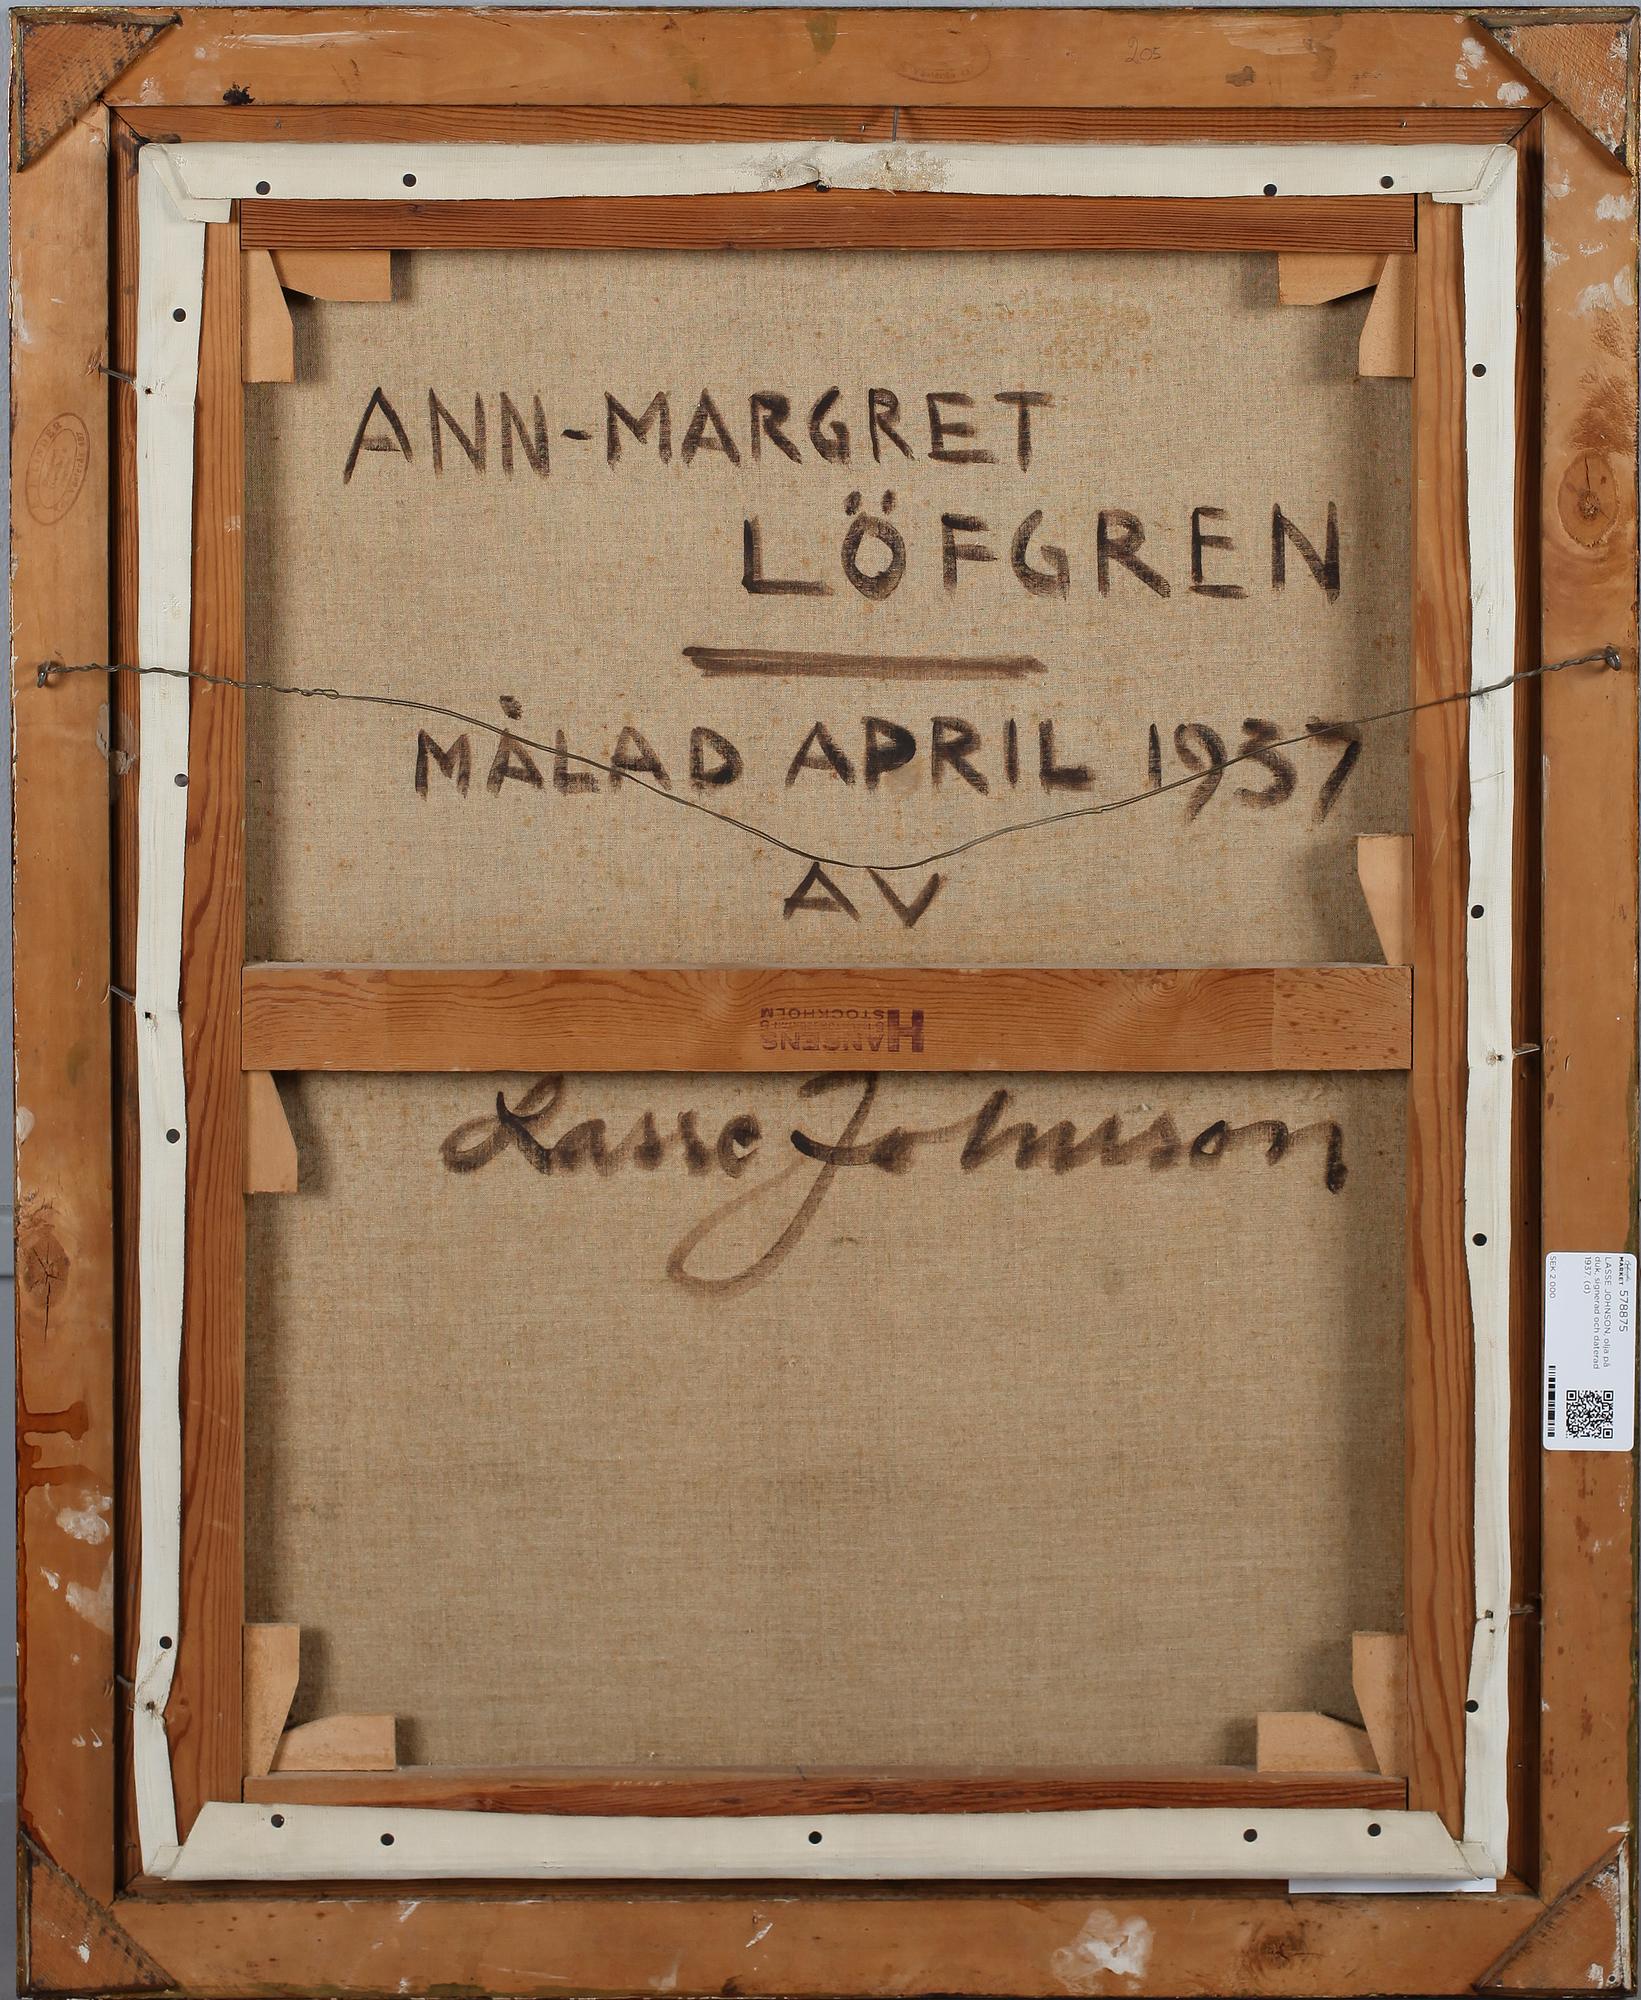 205
ANN-MARGRET
LÖFGREN
MÅLAD APRIL 1937
AV
HANSENS
STOCKHOLM
Lasse Johnson
MARKET 578875
LASSE JOHNSON, olja på
duk, signerad och daterad
1937. (d)
SEK 2 000